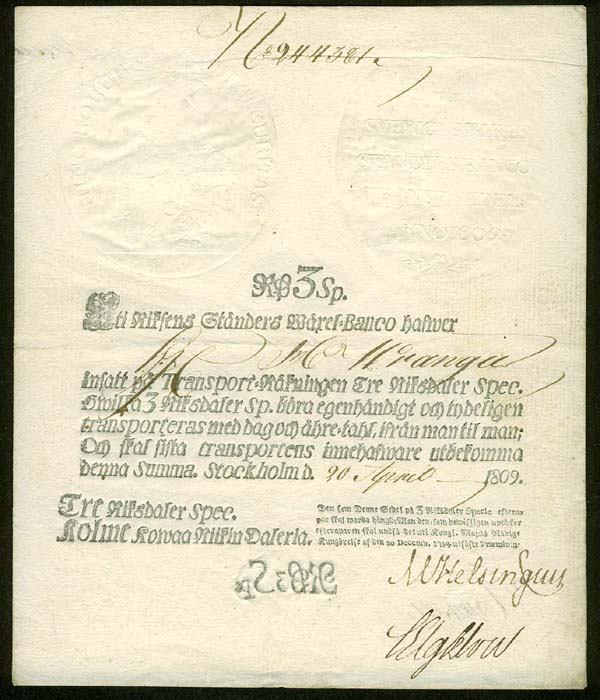 No 244381.
SVERIGES RIKES
STÄNDERS BANCO
ANNO 1809
RD 3 Sp.
Uti Riksens Ständers Wäxel-Banco hafwer
Wrangel
Insatt på Transport-Räkningen Tre Riksdaler Spec.
Hwilka 3 Riksdaler Sp. böra egenhändigt och tydeligen
transporteras med dag och åhre-tahl, ifrån man til man;
Och skal sista transportens innehafware utbekomma
denna Summa. Stockholm d. 20 April 1809.
Tre Riksdaler Spec.
Kolme Kowaa Riikin Daleria.
Den som Denne Sedel på 3 Riksdaler Specie efterap-
par skal warda hängd; Men den, som bewisligen uptäcker
efteraparen skal undfå det uti Kongl. Maj:ts Nådige
Kungörelse af den 20 Decemb. utfäste Præmium.
RD 3 Sp
Helsingius